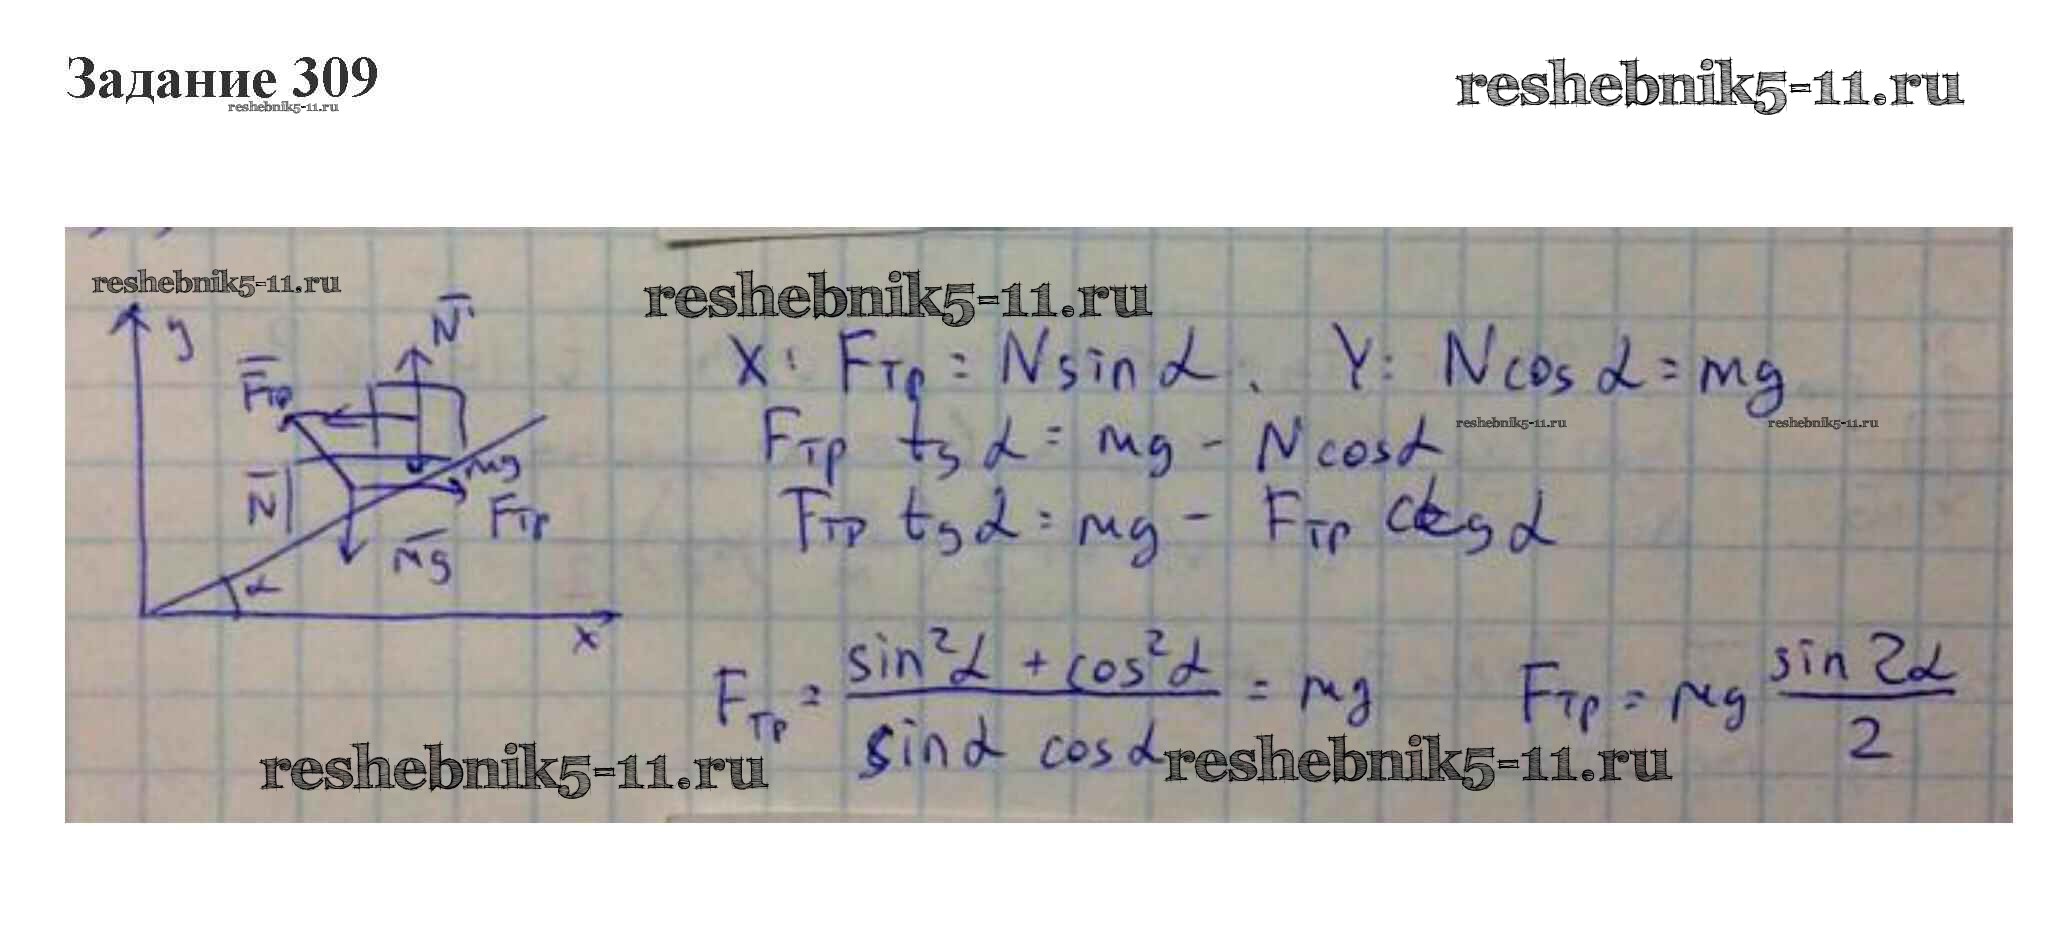 Задание 309
reshebnik5-11.ru
reshebnik5-11.ru
reshebnik5-11.ru
reshebnik5-11.ru
y
N'
Fтр
X: Fтр = N sin α. Y: N cos α = mg
reshebnik5-11.ru
reshebnik5-11.ru
Fтр tg α = mg - N cos α
mg
N
Fтр
Fтр tg α = mg - Fтр ctg α
mg
α
x
Fтр = sin²α + cos²α / sin α cos α = mg
Fтр = mg sin 2α / 2
reshebnik5-11.ru
reshebnik5-11.ru